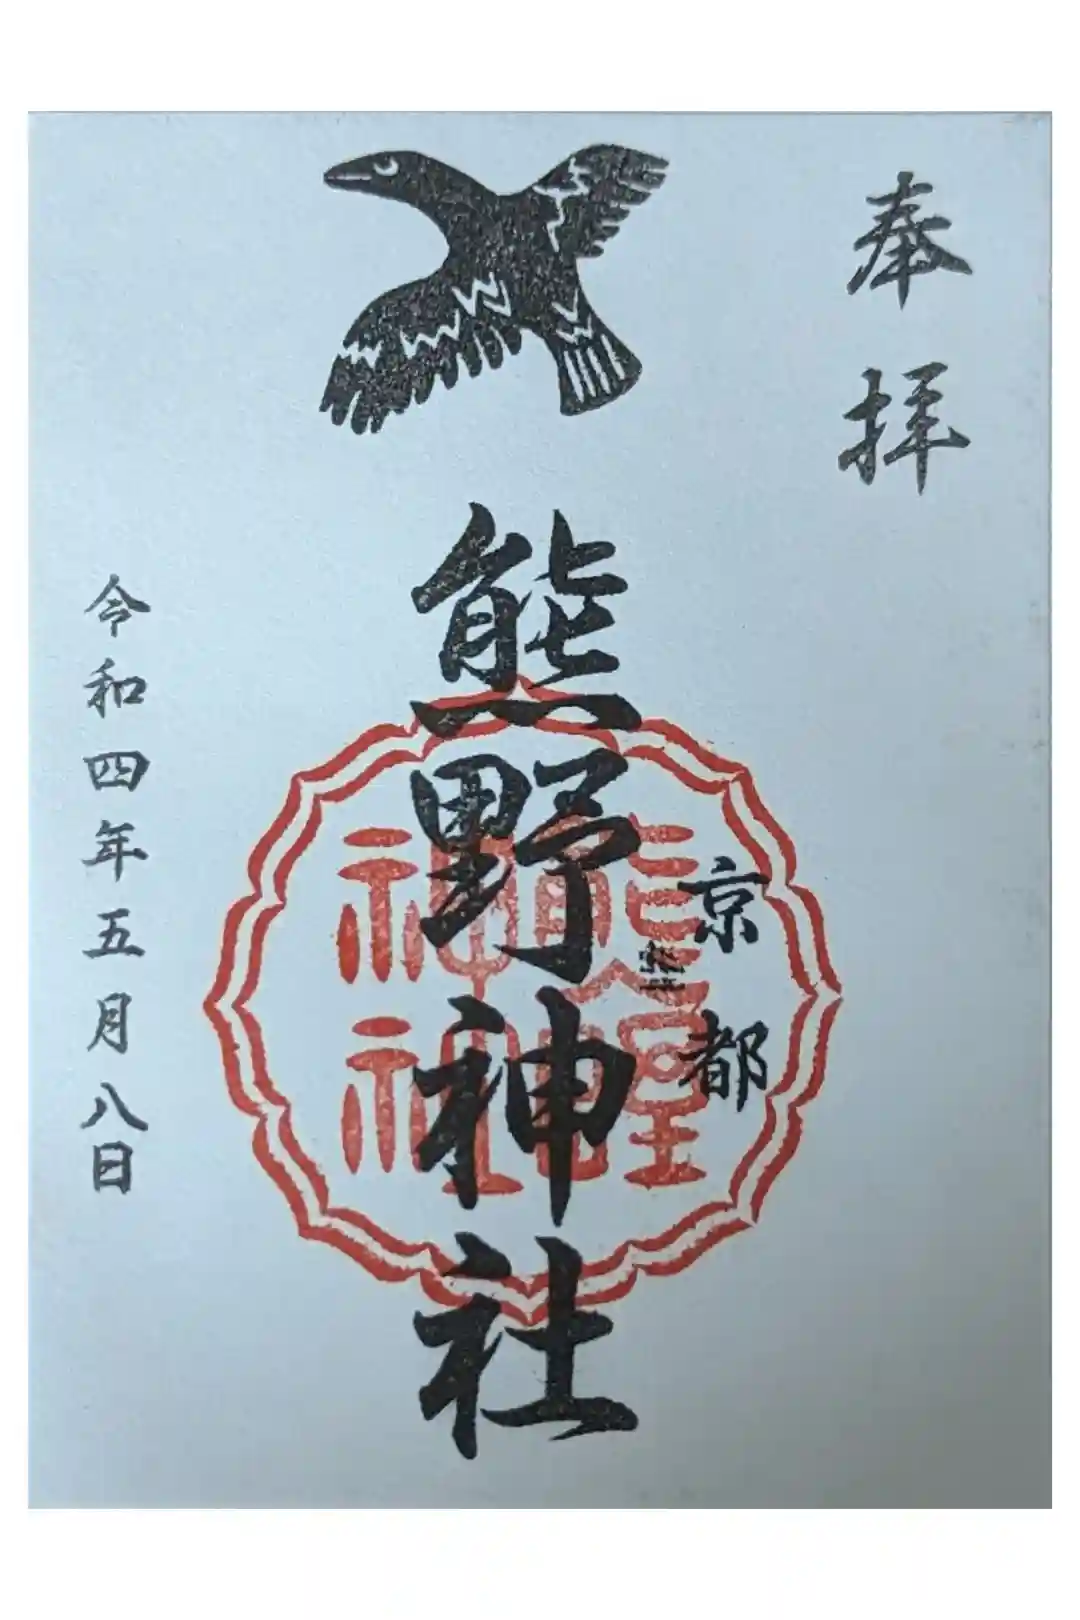 奉拝
京都
熊野神社
熊野
神社
令和四年五月八日